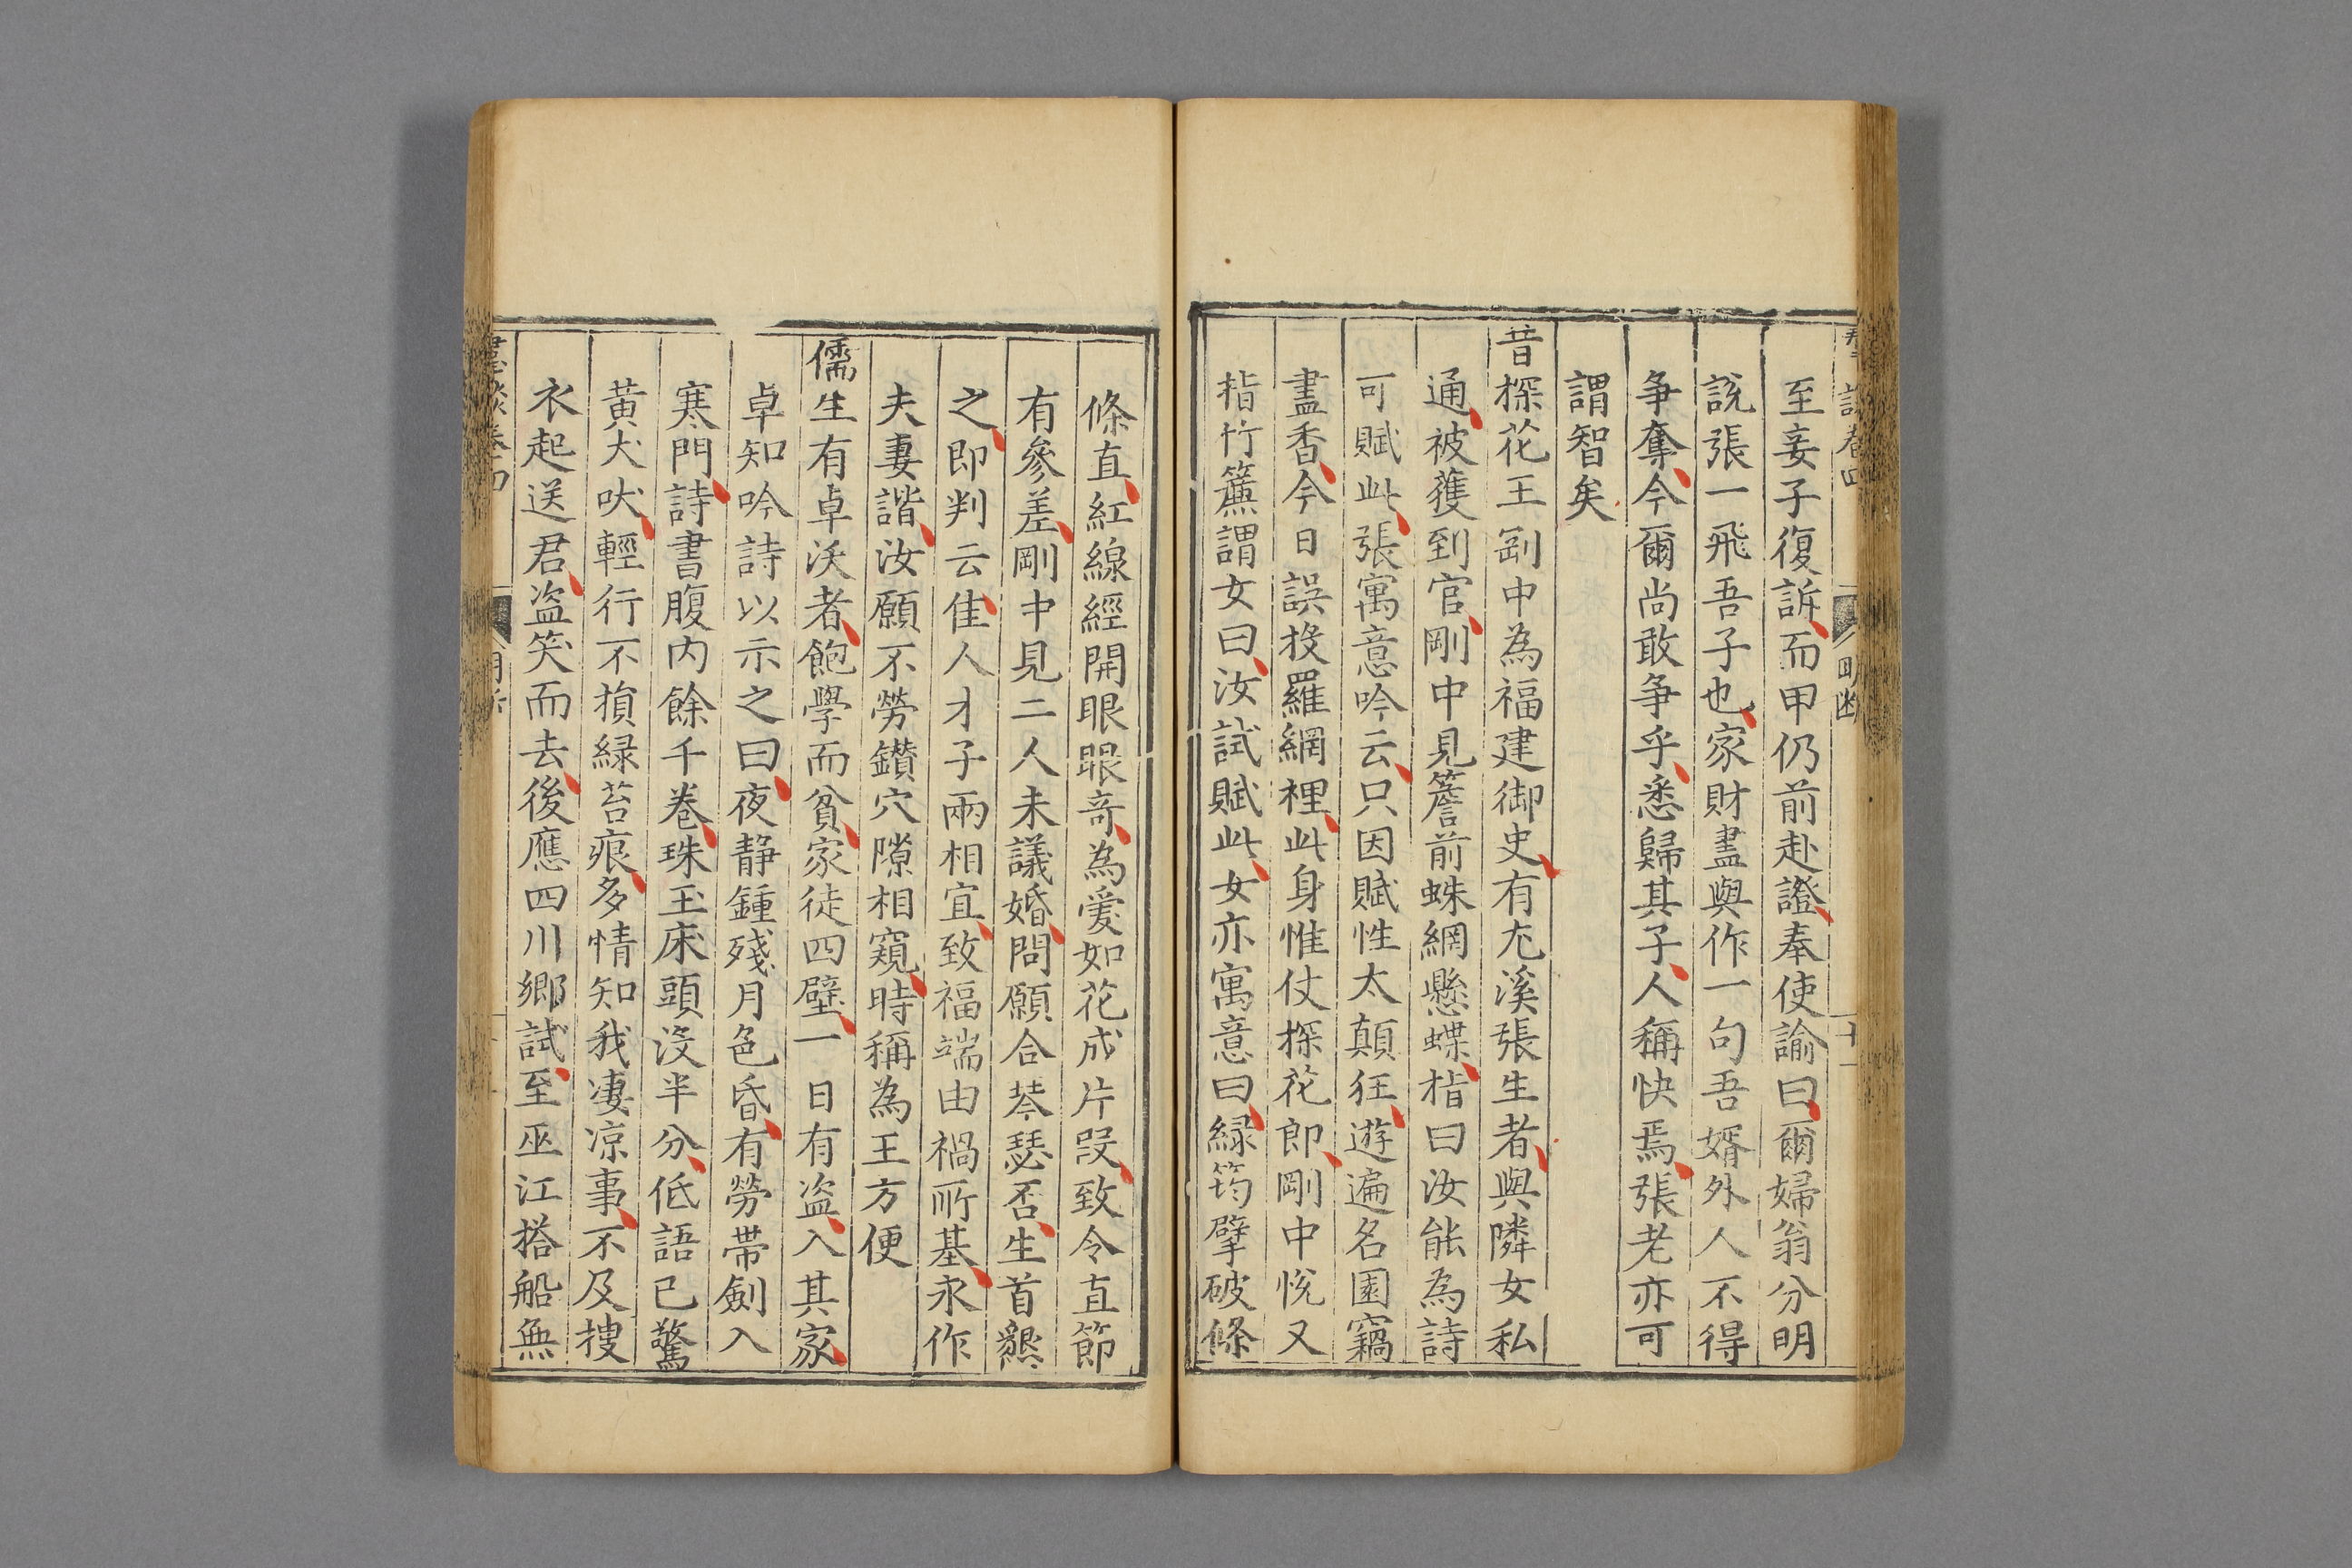 談卷四 明断 十一
至妾子復訴而甲仍前赴證奉使諭曰爾婦翁分明
說張一飛吾子也家財盡與作一句吾婿外人不得
争奪今爾尚敢争乎悉歸其子人稱快焉張老亦可
謂智矣
昔探花王剛中為福建御史有尤溪張生者與隣女私
通被獲到官剛中見簷前蛛網懸蝶指曰汝能為詩
可賦此張寓意吟云只因賦性太顛狂遊遍名園竊
盡香今日誤投羅網裡此身惟仗探花郎剛中悅又
指竹簾謂女曰汝試賦此女亦寓意曰緑筠擘破條
條直紅線經開眼眼竒為愛如花成片段致令直節
有參差剛中見二人未議婚問願合琴瑟否生首懇
之即判云佳人才子兩相宜致福端由禍所基永作
夫妻諧汝願不勞鑚穴隙相窺時稱為王方便
儒生有卓沃者飽學而貧家徒四壁一日有盗入其家
卓知吟詩以示之曰夜静鍾殘月色昏有勞帶劍入
寒門詩書腹内餘千卷珠玉床頭沒半分低語已驚
黄犬吠輕行不損緑苔痕多情知我凄凉事不及搜
衣起送君盗笑而去後應四川鄉試至巫江搭船無
談卷四 明断